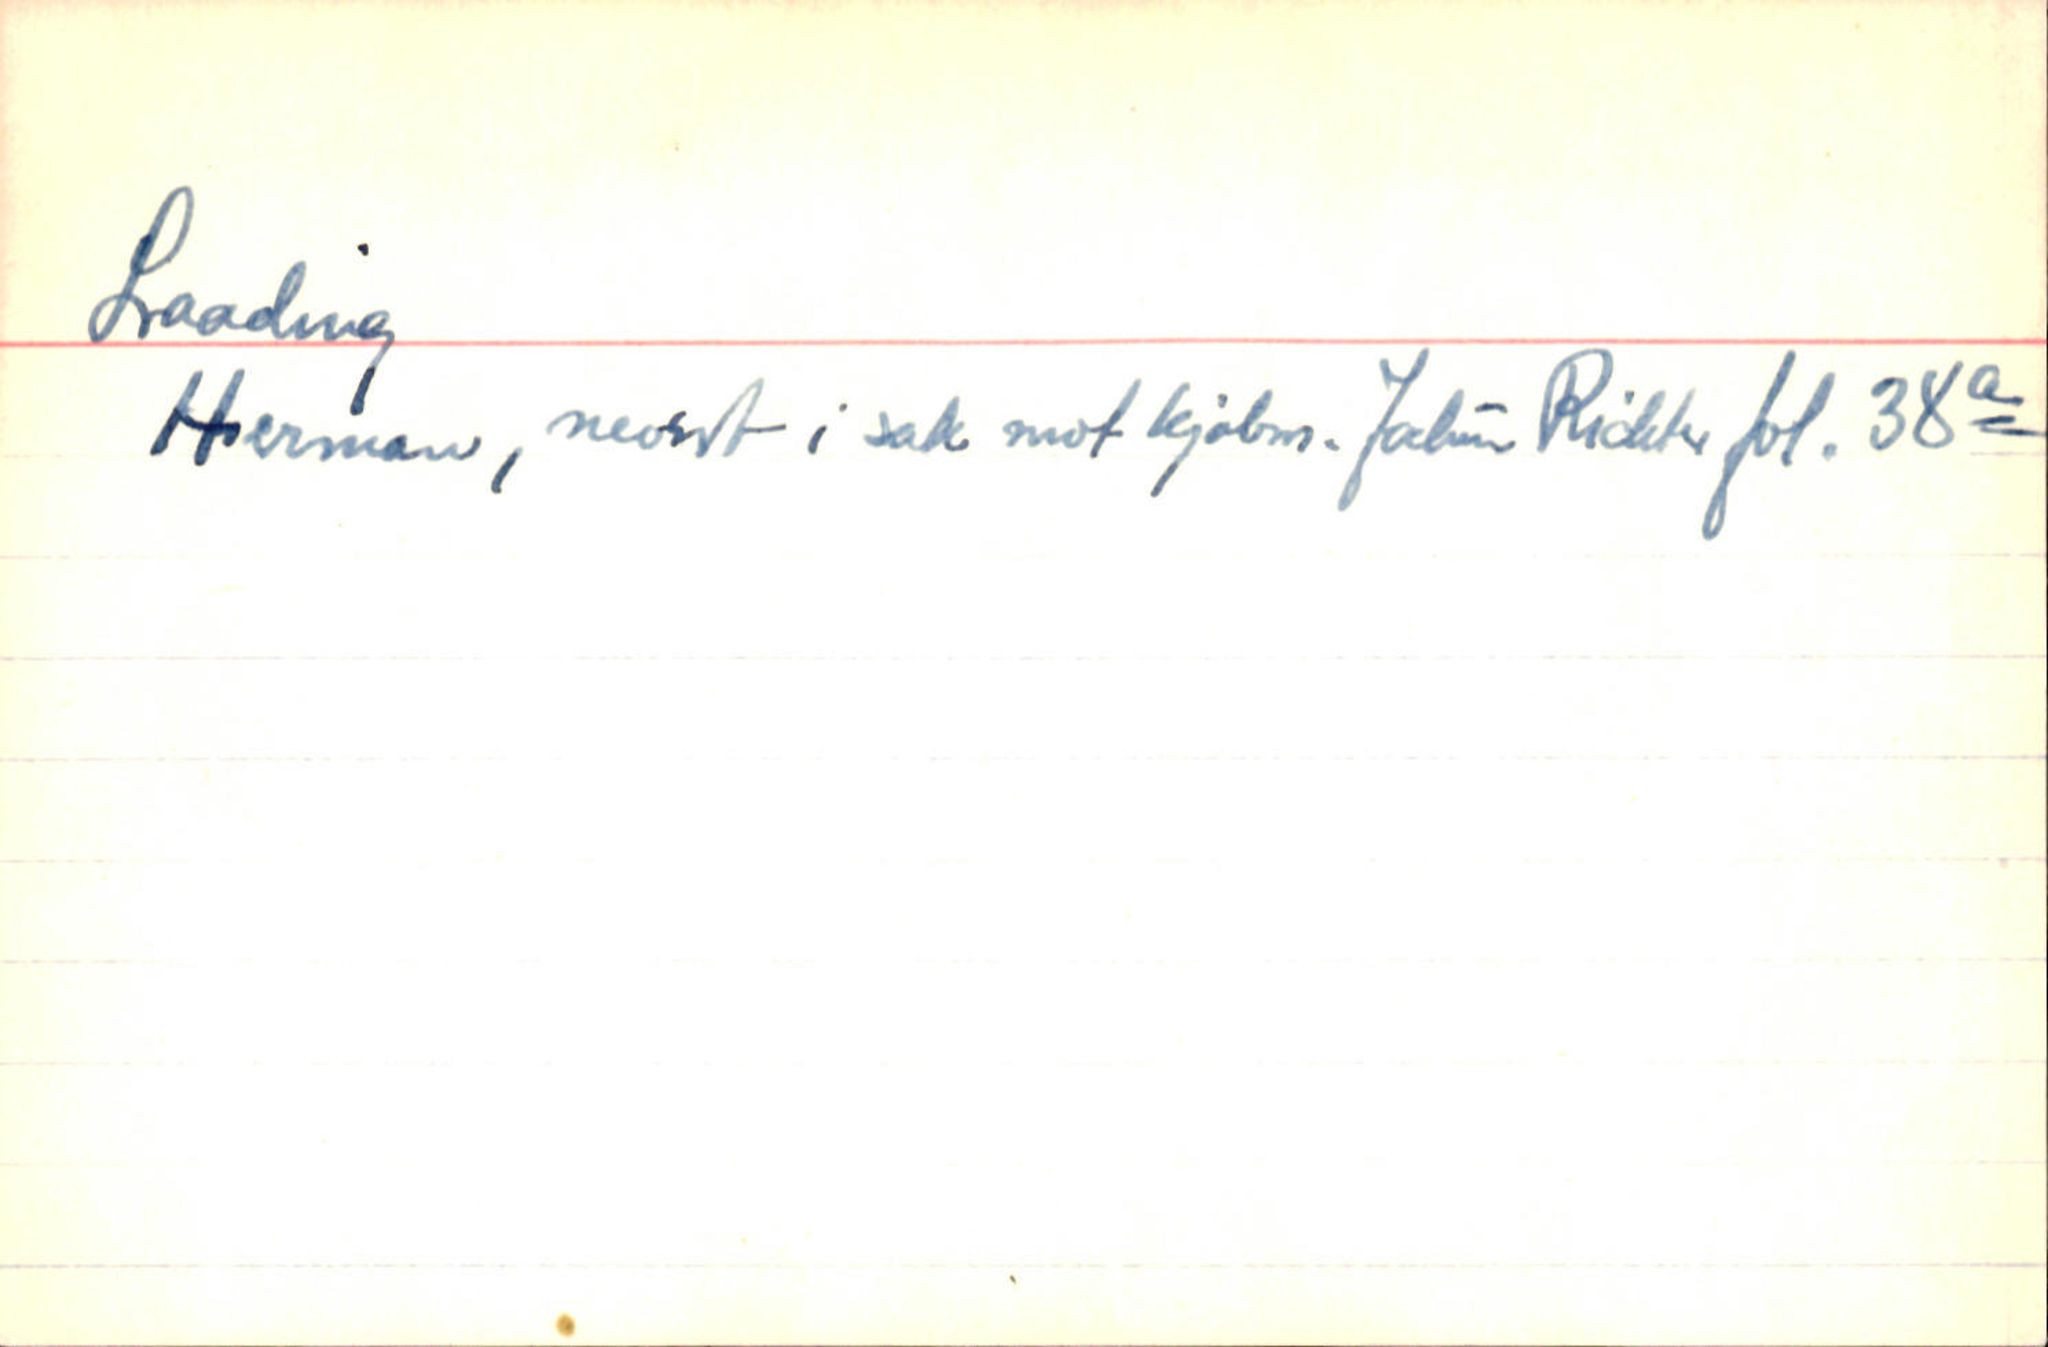 Laading
Herman, nevnt i sak mot kjøbm. Jochum Richter fol. 38a